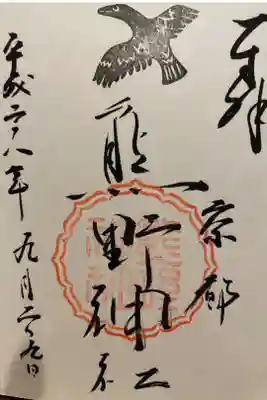 奉拝
京都
熊野神社
平成二八年 九月二九日